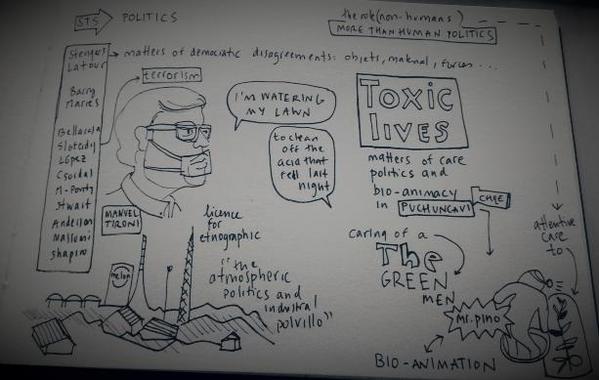 STS
POLITICS
the role (non-humans)
MORE THAN HUMAN POLITICS
Stengers
Latour
Barry
Marres
Bellacasa
Sloterdij
López
Csordas
M-Ponty
Stwart
Anderson
Massumi
Shapiro
matters of democratic disagreements: objets, material, forces ...
terrorism
I'M WATERING
MY LAWN
to clean
off the
acid that
fell last
night
MANUEL
TIRONI
Toxic
lives
matters of care
politics and
bio-animacy
in PUCHUNCAVÍ
CHILE
licence
for
etnographic
"the
atmospheric
politics and
industrial
polvillo"
caring of a
The
GREEN
MEN
attentive
care
to
Mr. pino
BIO-ANIMATION